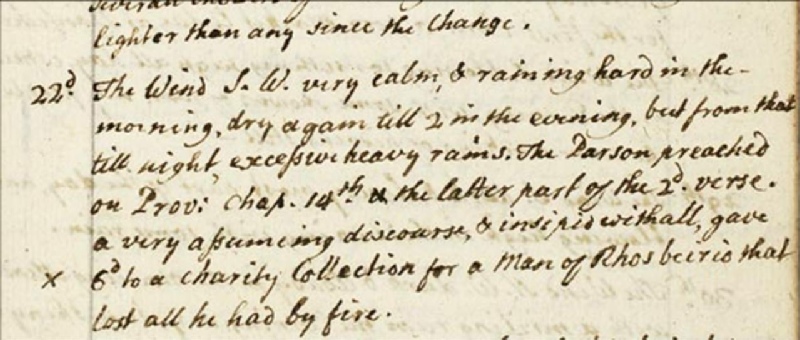 lighter than any since the Change.
22d. The Wind S. W. very calm, & raining hard in the-
morning, dry again till 2 in the evening, but from that
till night excessive heavy rains. The Parson preached
on Prov: Chap. 14th & the latter part of the 2d. verse.
a very assumeing discourse, & insipid withall, gave
x 6d to a charity Collection for a Man of Rhosbeirio that
lost all he had by fire.